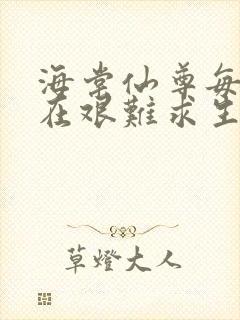 海棠仙尊每
在艰難求生
草燈大人